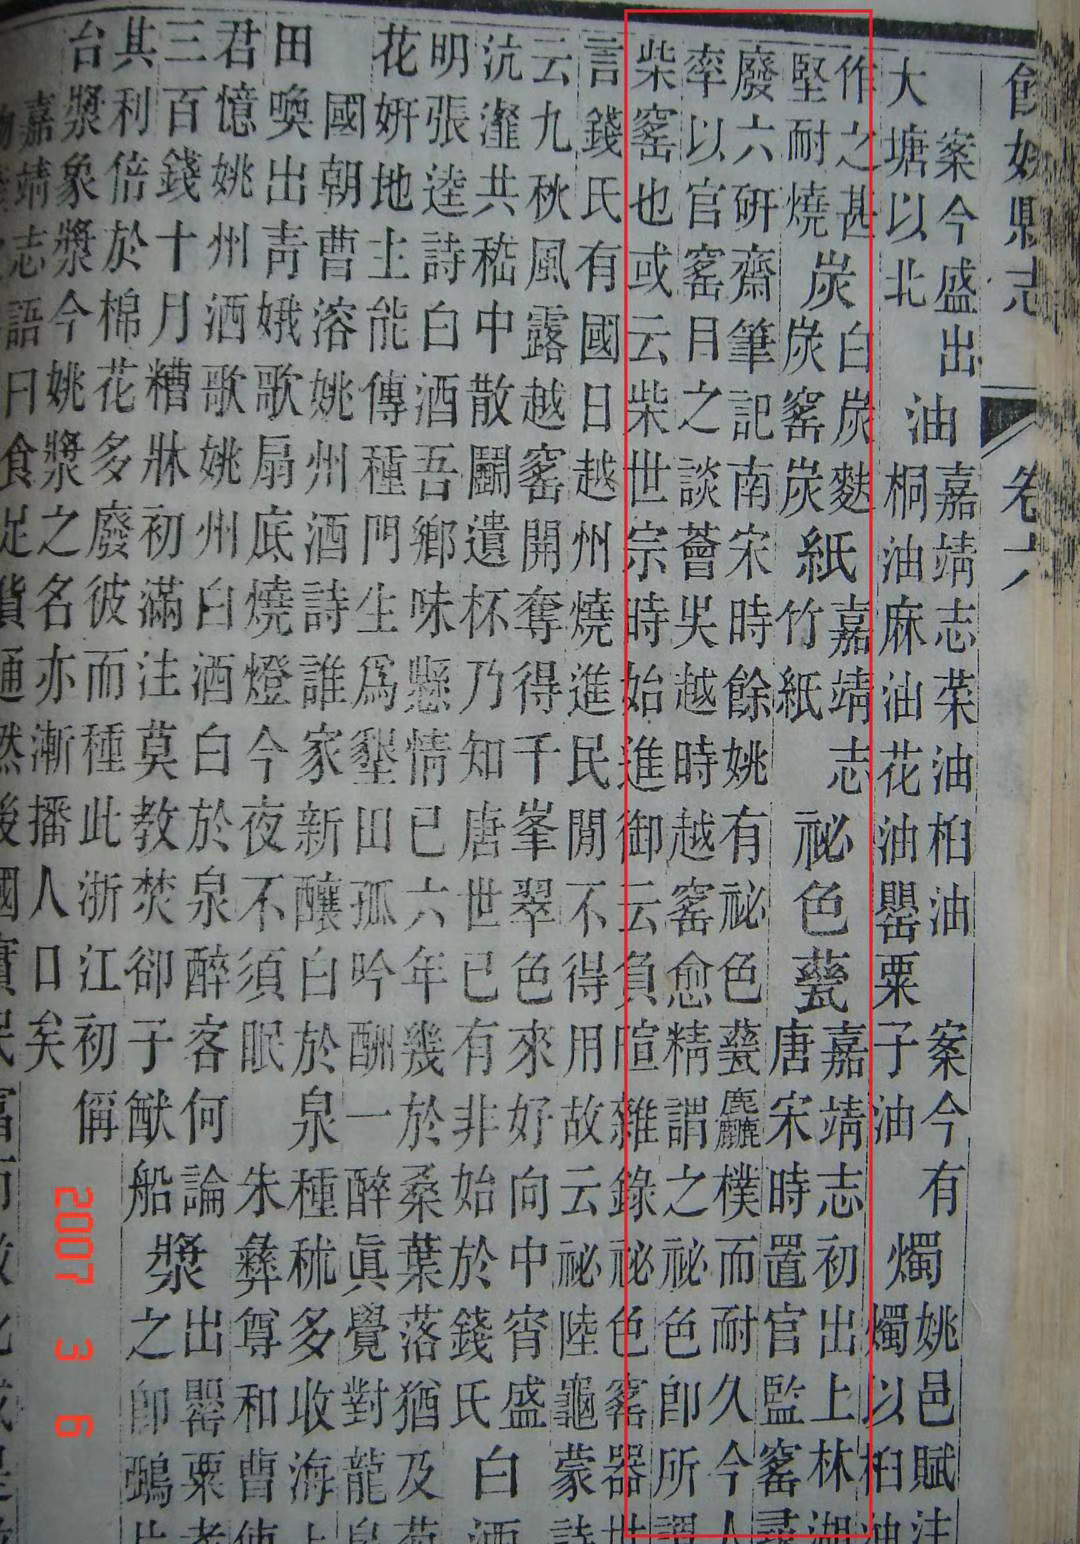 餘姚縣志 卷六
案今盛出
大塘以北
油
嘉靖志菜油桕油
桐油麻油花油罌粟子油
案今有
燭
姚邑賦注
燭以桕油
作之甚
堅耐燒
炭
白炭麩
炭窰炭
紙
嘉靖志
竹紙
祕色甆
嘉靖志初出上林湖
唐宋時置官監窰尋
廢六研齋筆記南宋時餘姚有祕色甆麤樸而耐久今人
率以官窰月之談薈吳越時越窰愈精謂之祕色卽所謂
柴窰也或云柴世宗時始進御云負暄雜錄祕色窰器世
言錢氏有國日越州燒進民閒不得用故云祕陸龜蒙詩
云九秋風露越窰開奪得千峯翠色來好向中宵盛
沆瀣共嵇中散鬭遺杯乃知唐世已有非始於錢氏
白酒
明張逵詩白酒吾鄉味懸情已六年幾於桑葉落猶及菊
花妍地土能傳種門生爲墾田孤吟酬一醉眞覺對龍泉
國朝曹溶姚州酒詩誰家新釀白於泉種秫多收海上
田喚出靑娥歌扇底燒燈今夜不須眠
朱彝尊和曹使
君憶姚州酒歌姚州白酒白於泉醉客何論
三百錢十月糟牀初滿注莫教焚卻子猷船
漿
出罌粟者
之卽鵶片
其利倍於棉花多廢彼而種此浙江初偁
台漿象漿今姚漿之名亦漸播人口矣
嘉靖志語曰食足貨通然後國實民富而
2007 3 6